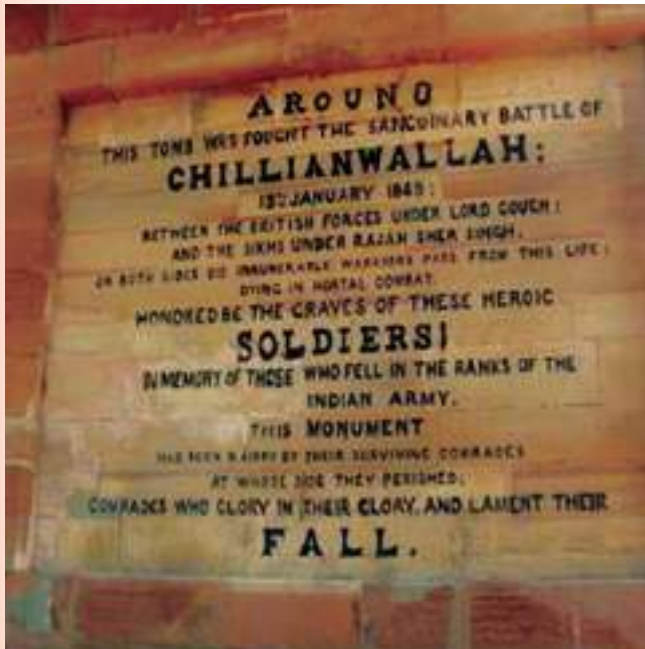 AROUND
THIS TOMB WAS FOUGHT THE SANGUINARY BATTLE OF
CHILLIANWALLAH:
13TH JANUARY 1849:
BETWEEN THE BRITISH FORCES UNDER LORD GOUGH:
AND THE SIKHS UNDER RAJAH SHER SINGH.
ON BOTH SIDES DID INNUMERABLE WARRIORS PASS FROM THIS LIFE:
DYING IN MORTAL COMBAT.
HONORED BE THE GRAVES OF THESE HEROIC
SOLDIERS!
IN MEMORY OF THOSE WHO FELL IN THE RANKS OF THE
INDIAN ARMY.
THIS MONUMENT
HAS BEEN RAISED BY THEIR SURVIVING COMRADES
AT WHOSE SIDE THEY PERISHED:
COMRADES WHO GLORY IN THEIR GLORY, AND LAMENT THEIR
FALL.